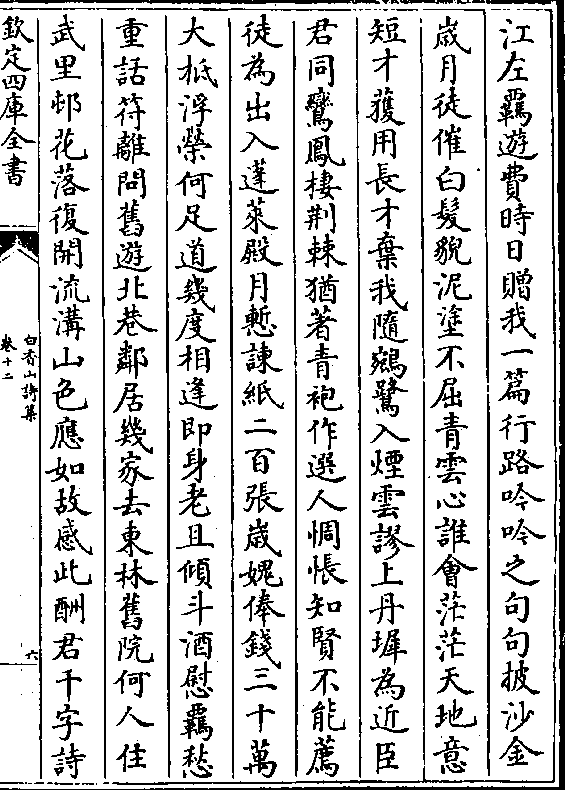 江左覊遊費時日贈我一篇行路吟吟之句句披沙金
歲月徒催白髮貌泥塗不屈青雲心誰㑹茫茫天地意
短才獲用長才棄我隨鵷鷺入煙雲謬上丹墀為近臣
君同鸞鳳棲荆棘猶著青袍作選人惆悵知賢不能薦
徒為出入蓬萊殿月慙諫紙二百張歲媿俸錢三十萬
大柢浮榮何足道幾度相逢即身老且傾斗酒慰覊愁
重話符離問舊遊北巷鄰居幾家去東林舊院何人住
武里邨花落復開流溝山色應如故感此酬君千字詩
欽定四庫全書
白香山詩集
卷十二
六